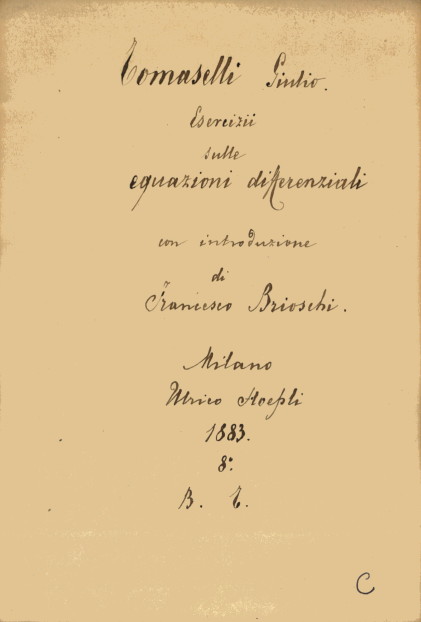 Tomaselli Giulio.
Esercizii
sulle
equazioni differenziali
con introduzione
di
Francesco Brioschi.
Milano
Ulrico Hoepli
1883.
8°.
B. T.
C